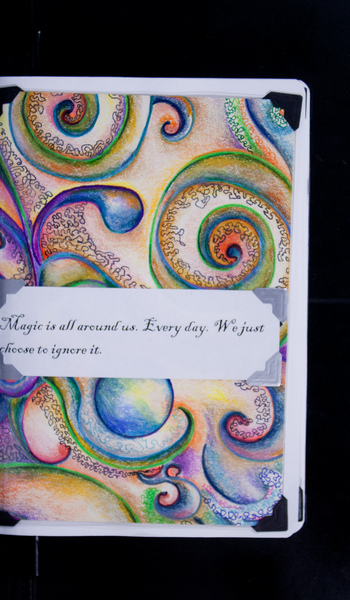 Magic is all around us. Every day. We just
choose to ignore it.